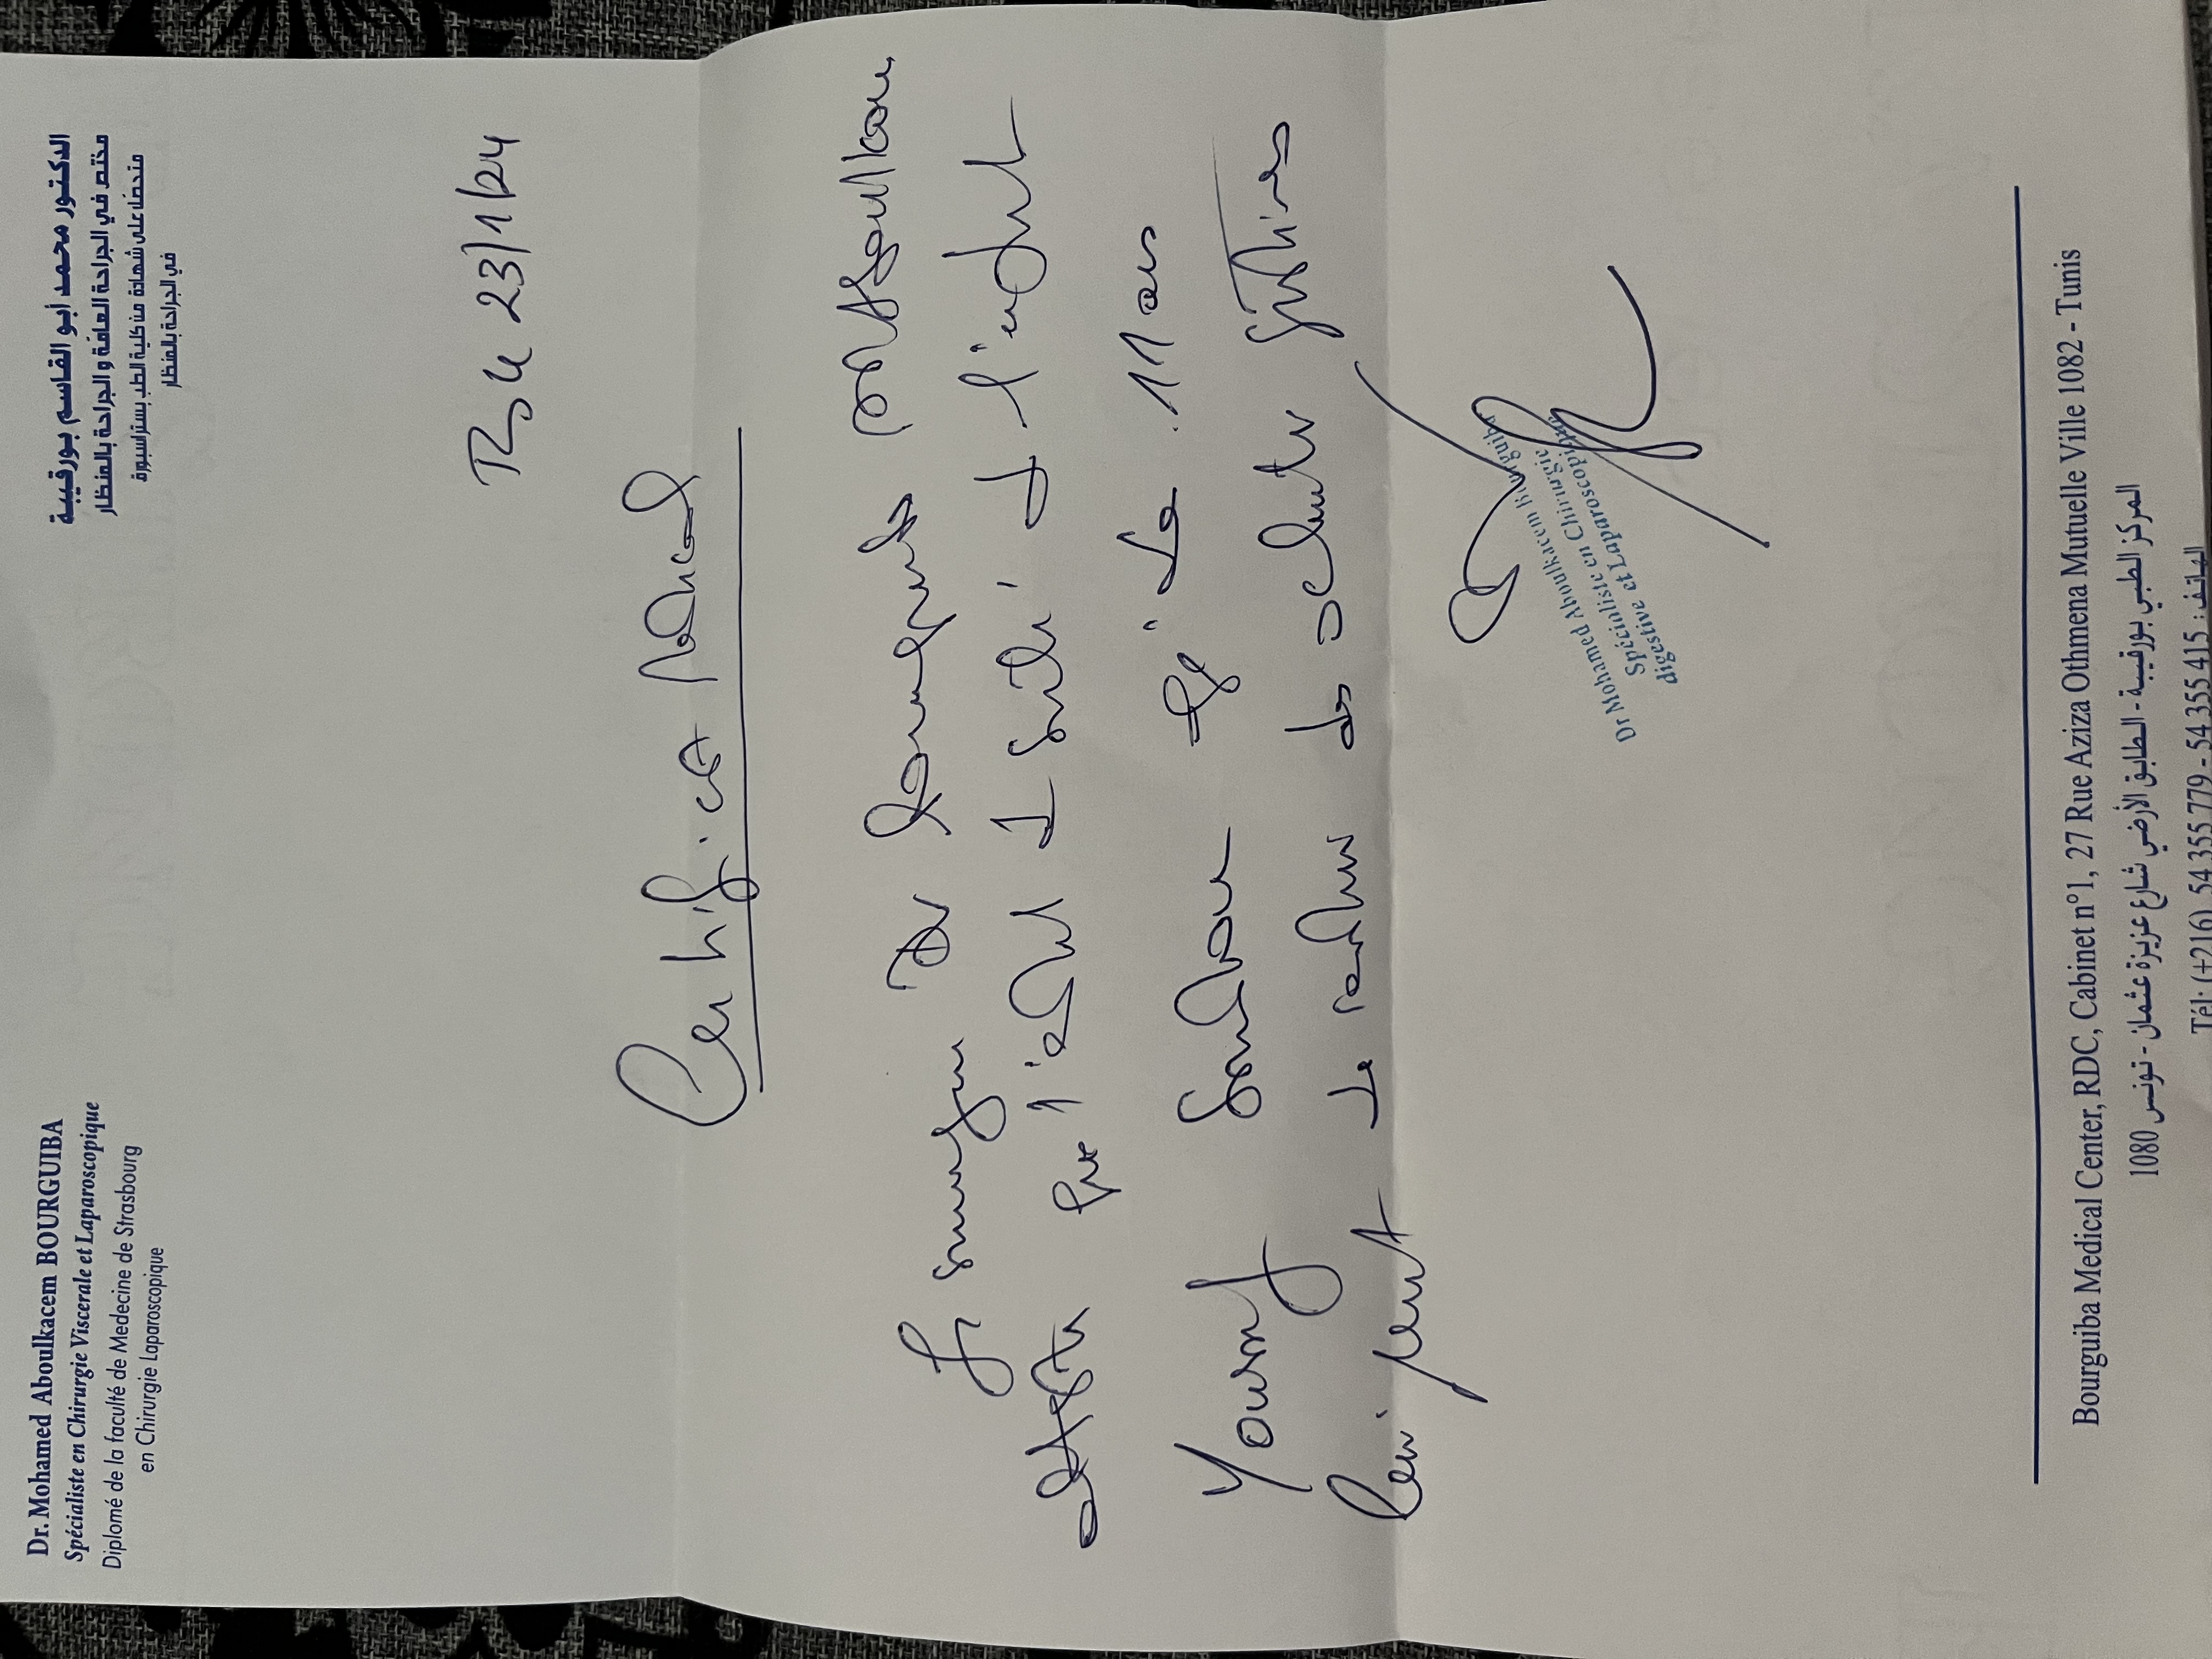 Dr. Mohamed Aboulkacem BOURGUIBA
Spécialiste en Chirurgie Viscerale et Laparoscopique
Diplomé de la faculté de Medecine de Strasbourg
en Chirurgie Laparoscopique
الدكتور محمد أبو القاسم بورقيبة
مختص في الجراحة العامة و الجراحة بالمنظار
متحصل على شهادة من كلية الطب بستراسبورغ
في الجراحة بالمنظار
23/1/24
Certificat Médical
Je soussigné Dr Bourguiba M Aboulkacem
atteste que l'état de santé de l'enfant
âgé de 11 ans
lui permet de pratiquer des activités
Dr Mohamed Aboulkacem Bourguiba
Spécialiste en Chirurgie
Digestive et Laparoscopique
Bourguiba Medical Center, RDC, Cabinet n°1, 27 Rue Aziza Othmena Mutuelle Ville 1082 - Tunis
المركز الطبي بورقيبة - الطابق الأرضي شارع عزيزة عثمان - تونس 1080
Tél: (+216) 54 355 779 - 54 355 415 : الهاتف